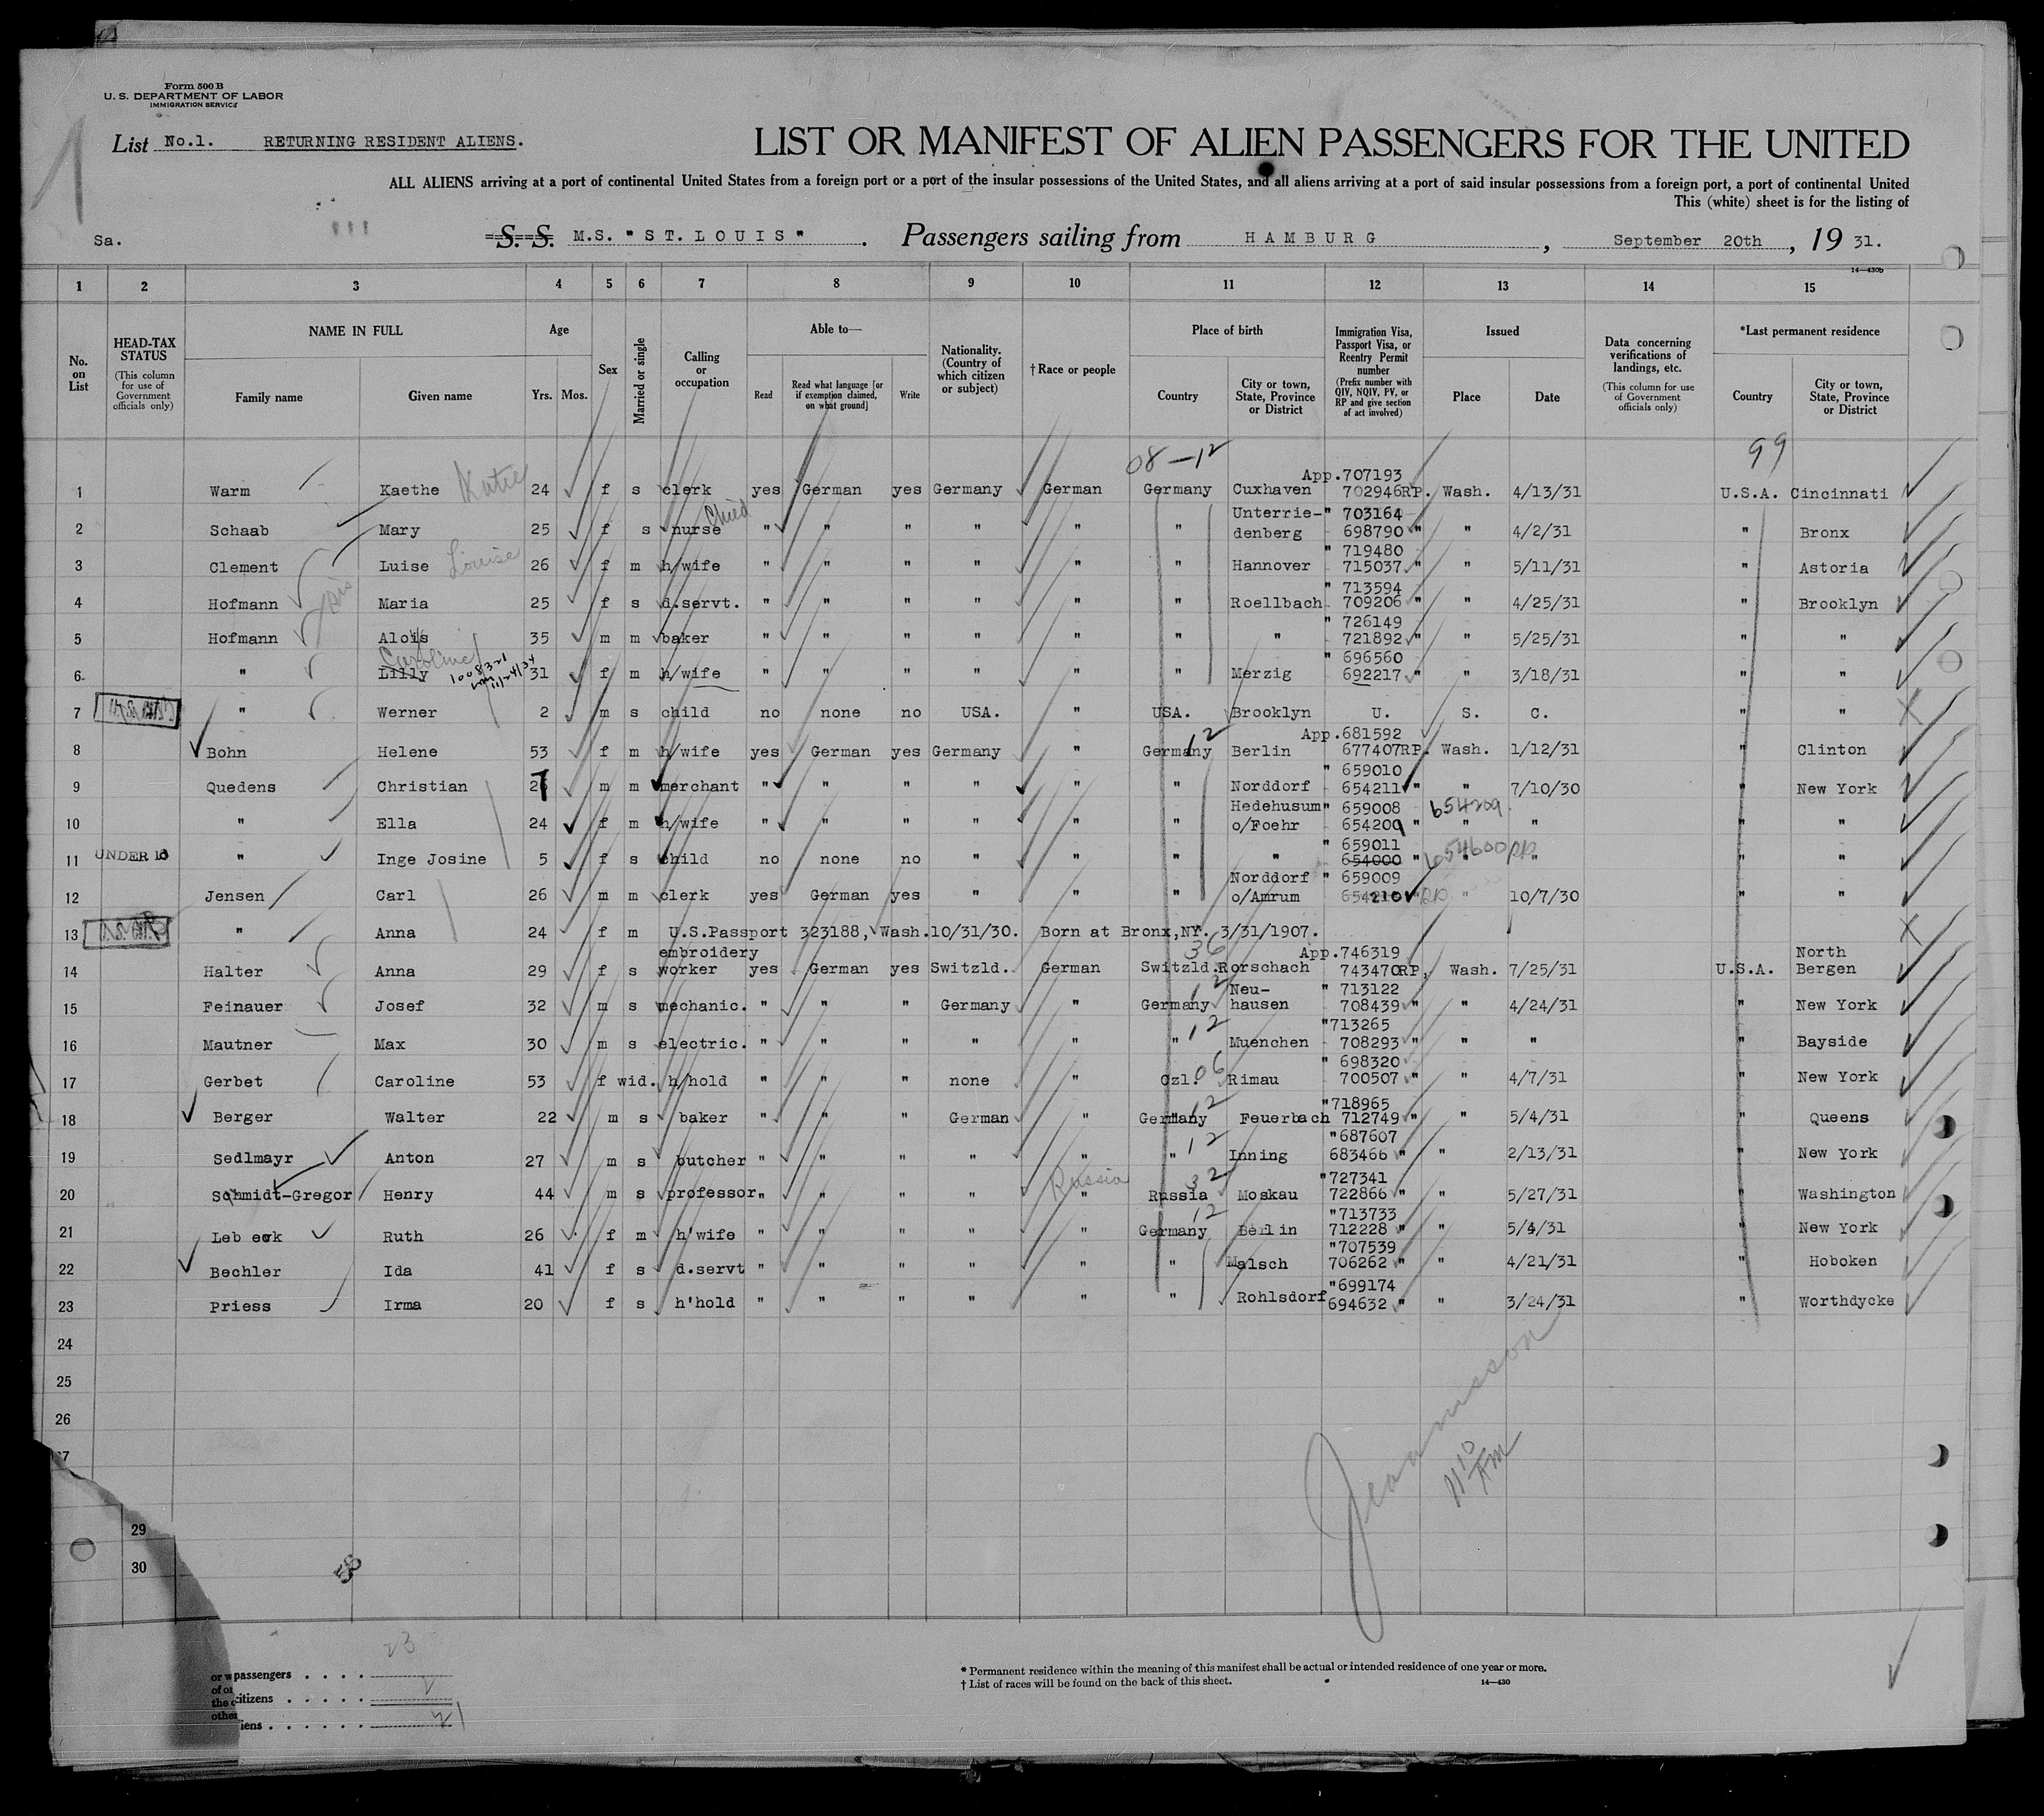 Form 500 B
U. S. DEPARTMENT OF LABOR
IMMIGRATION SERVICE
1
List No.1. RETURNING RESIDENT ALIENS.
LIST OR MANIFEST OF ALIEN PASSENGERS FOR THE UNITED
ALL ALIENS arriving at a port of continental United States from a foreign port or a port of the insular possessions of the United States, and all aliens arriving at a port of said insular possessions from a foreign port, a port of continental United
This (white) sheet is for the listing of
Sa. S. S. M.S. "ST.LOUIS". Passengers sailing from HAMBURG, September 20th, 19 31.
14—430b
1 2 3 4 5 6 7 8 9 10 11 12 13 14 15
No. on List
HEAD-TAX STATUS (This column for use of Government officials only)
NAME IN FULL
Family name Given name
Age
Yrs. Mos.
Sex
Married or single
Calling or occupation
Able to—
Read Read what language [or if exemption claimed, on what ground] Write
Nationality. (Country of which citizen or subject)
† Race or people
Place of birth
Country City or town, State, Province or District
Immigration Visa, Passport Visa, or Reentry Permit number (Prefix number with QIV, NQIV, PV, or RP and give section of act involved)
Issued
Place Date
Data concerning verifications of landings, etc. (This column for use of Government officials only)
*Last permanent residence
Country City or town, State, Province or District
08-12 99
App.707193
1 Warm Kaethe Katie 24 f s clerk yes German yes Germany German Germany Cuxhaven 702946RP. Wash. 4/13/31 U.S.A. Cincinnati
Child Unterrie- " 703164
2 Schaab Mary 25 f s nurse " " " " " " denberg 698790 " " 4/2/31 " Bronx
" 719480
3 Clement Luise Louise 26 f m h/wife " " " " " " Hannover 715037 " " 5/11/31 " Astoria
" 713594
4 Hofmann Maria 25 f s d.servt. " " " " " " Roellbach 709206 " " 4/25/31 " Brooklyn
" 726149
5 Hofmann Alois 35 m m baker " " " " " " " 721892 " " 5/25/31 " "
Caroline 1008321 " 696560
6 " Lilly 31 f m h/wife " " " " " " Merzig 692217 " " 3/18/31 " "
7 " Werner 2 m s child no none no USA. " USA. Brooklyn U. S. C. " "
12 App.681592
8 Bohn Helene 53 f m h/wife yes German yes Germany " Germany Berlin 677407RP. Wash. 1/12/31 " Clinton
" 659010
9 Quedens Christian 27 m m merchant " " " " " " Norddorf 654211 " " 7/10/30 " New York
Hedehusum " 659008 654209
10 " Ella 24 f m h/wife " " " " " " o/Foehr 654209 " " " " "
" 659011
11 UNDER 16 " Inge Josine 5 f s child no none no " " " " 654000 " 654600 RP " " " "
Norddorf " 659009
12 Jensen Carl 26 m m clerk yes German yes " " " o/Amrum 654210 " RP " 10/7/30 " "
13 " Anna 24 f m U.S.Passport 323188, Wash.10/31/30. Born at Bronx,NY. 3/31/1907.
embroidery 36 App.746319 North
14 Halter Anna 29 f s worker yes German yes Switzld. German Switzld. Rorschach 743470RP, Wash. 7/25/31 U.S.A. Bergen
12 Neu- " 713122
15 Feinauer Josef 32 m s mechanic. " " " Germany " Germany hausen 708439 " " 4/24/31 " New York
12 "713265
16 Mautner Max 30 m s electric. " " " " " " Muenchen 708293 " " " " Bayside
06 " 698320
17 Gerbet Caroline 53 f wid. h/hold " " " none " Czl. Rimau 700507 " " 4/7/31 " New York
12 "718965
18 Berger Walter 22 m s baker " " " German " Germany Feuerbach 712749 " " 5/4/31 " Queens
12 "687607
19 Sedlmayr Anton 27 m s butcher " " " " " " Inning 683466 " " 2/13/31 " New York
Russia 32 "727341
20 Schmidt-Gregor Henry 44 m s professor " " " " " Russia Moskau 722866 " " 5/27/31 " Washington
12 "713733
21 Leb eck Ruth 26 f m h'wife " " " " " Germany Berlin 712228 " " 5/4/31 " New York
"707539
22 Bechler Ida 41 f s d.servt " " " " " " Malsch 706262 " " 4/21/31 " Hoboken
"699174
23 Priess Irma 20 f s h'hold " " " " " " Rohlsdorf 694632 " " 3/24/31 " Worthdycke
24
25
26
29
30
11 10 AM
23
passengers . . . .
citizens . . . . . 2
iens . . . . . . 21
* Permanent residence within the meaning of this manifest shall be actual or intended residence of one year or more.
† List of races will be found on the back of this sheet. 14—430